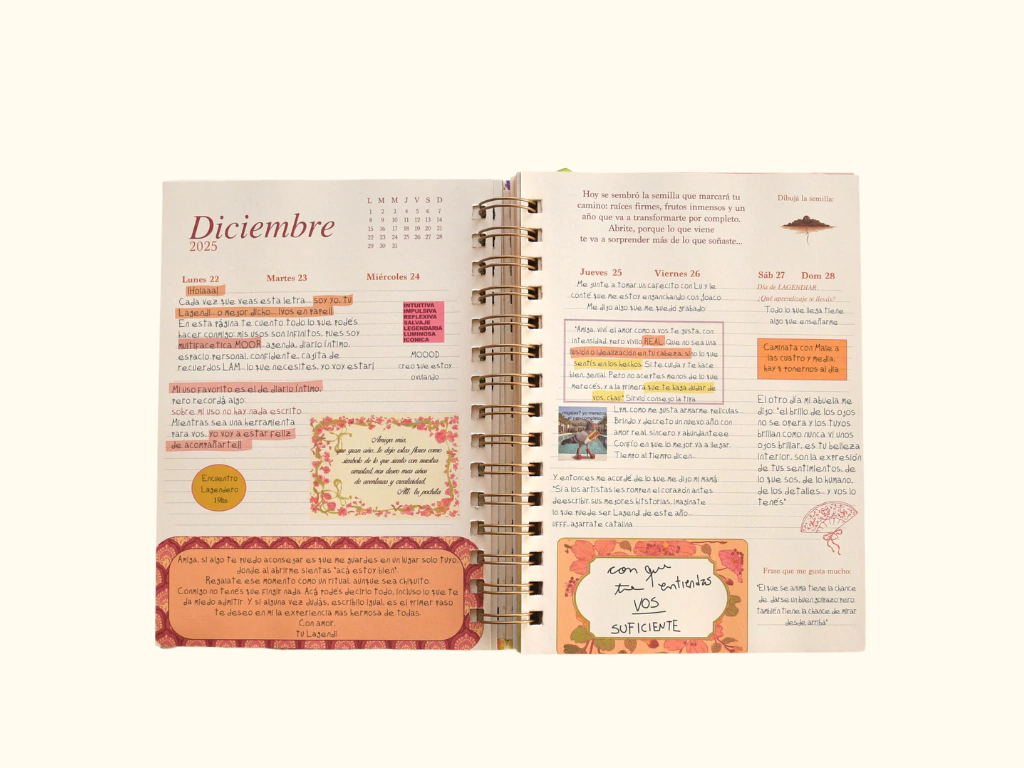 Diciembre
2025
L M M J V S D
1 2 3 4 5 6 7
8 9 10 11 12 13 14
15 16 17 18 19 20 21
22 23 24 25 26 27 28
29 30 31
Lunes 22
Martes 23
Miércoles 24
¡Holaaa!
Cada vez que veas esta letra... soy yo, tu
Lagendi... o mejor dicho... ¡vos en papel!
En esta página te cuento todo lo que podés
hacer conmigo: mis usos son infinitos, pues soy
multifacética MOOR, agenda, diario íntimo,
espacio personal, confidente, cajita de
recuerdos LAM... lo que necesites, ¡yo voy estar!
Mi uso favorito es el de diario íntimo,
pero recordá algo:
sobre mi uso no hay nada escrito.
Mientras sea una herramienta
para vos, ¡yo voy a estar feliz
de acompañarte!!
INTUITIVA
IMPULSIVA
REFLEXIVA
SALVAJE
LEGENDARIA
LUMINOSA
ICONICA
MOOOD
creo que estoy
ovulando
Encuentro
Lagendero
19hs
Amiga mía,
que gran año, te dejo estas flores como
símbolo de lo que siento con nuestra
amistad, nos deseo mas años
de aventura y creatividad.
Atte. tu pochita
Amiga, si algo te puedo aconsejar es que me guardes en un lugar solo tuyo,
donde al abrirme sientas "acá estoy bien".
Regalate ese momento como un ritual, aunque sea chiquito.
Conmigo no tenés que fingir nada. Acá podés decirlo todo, incluso lo que te
da miedo admitir. Y si alguna vez dudas, escribilo igual, es el primer paso
te deseo en mí la experiencia más hermosa de todas.
Con amor,
tu Lagendi
Hoy se sembró la semilla que marcará tu
camino: raíces firmes, frutos inmensos y un
año que va a transformarte por completo.
Abrite, porque lo que viene
te va a sorprender más de lo que soñaste...
Dibujá la semilla:
Jueves 25
Viernes 26
Sáb 27
Dom 28
Me junte a tomar un cafecito con Lu y le
conté que me estoy enganchando con Joaco
Me dijo algo que me quedó grabado:
"Amiga, viví el amor como a vos te gusta, con
intensidad, pero vivilo REAL. Que no sea una
ilusión o idealización en tu cabeza, si no lo que
sentís en los hechos. Si te cuida y te hace
bien, genial. Pero no aceptes menos de lo que
merecés, y a la primera que te haga dudar de
vos, chau" Sirvió consejo la piba.
Lpm, como me gusta armarme películas...
Brindo y decreto un nuevo año con
amor real, sincero y abundanteee.
Confío en que lo mejor va a llegar.
Tiempo al tiempo dicen...
Y entonces me acordé de lo que me dijo mi mamá:
"Si a los artistas les rompen el corazón antes
de escribir sus mejores historias, imaginate
lo que puede ser Lagend de este año...
UFFF, agarrate catalina.
con que
tu entiendas
VOS
SUFICIENTE
Día de LAGENDIAR
¿Qué aprendizaje te llevás?
Todo lo que llega tiene
algo que enseñarme
Caminata con Male a
las cuatro y media,
hay q ponernos al día
El otro día mi abuela me
dijo: "el brillo de los ojos
no se opera y los tuyos
brillan como nunca vi unos
ojos brillar, es tu belleza
interior, son la expresión
de tus sentimientos, de
lo que sos, de lo humano,
de los detalles... y vos lo
tenés"
Frase que me gusta mucho:
"El que se anima tiene la chance
de darse un buen golpazo pero
también tiene la chance de mirar
desde arriba"